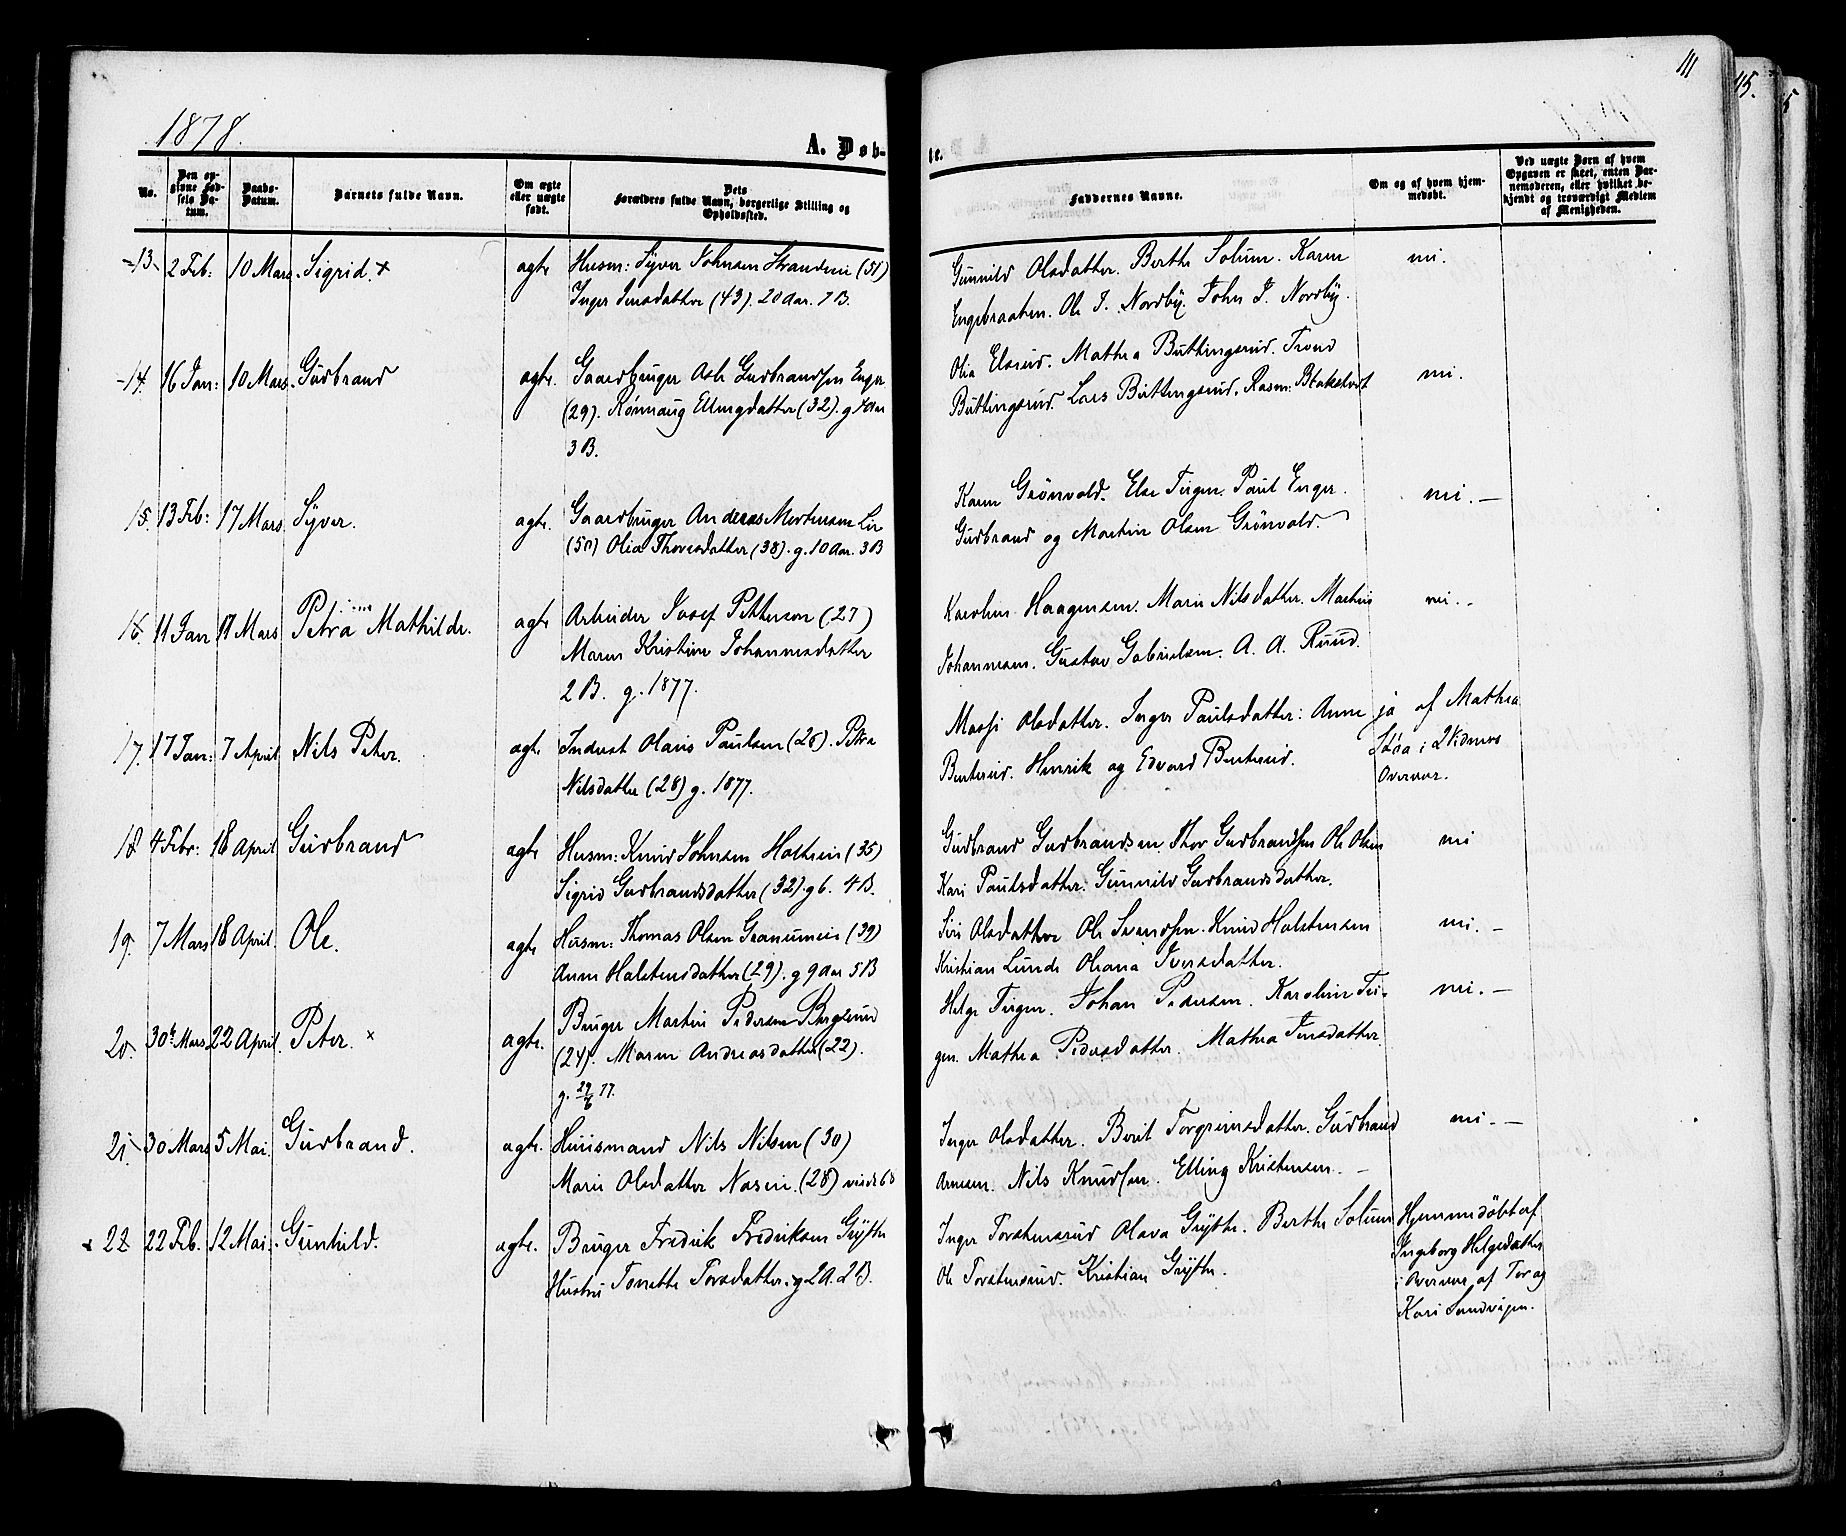 111
45.
5
1878.
A. Døb-
te.
No.
Den op-
givne Fød-
sels Da-
tum.
Daabs-
Datum.
Barnets fulde Navn.
Om ægte
eller uægte
født.
Dets
Forældres fulde Navn, borgerlige Stilling og
Opholdssted.
Faddernes Navne.
Om og af hvem hjem-
medøbt.
Ved uægte Børn af hvem
Opgaven er skeet, enten Bar-
nemoderen, eller hvilket be-
kjendt og troværdigt Medlem
af Menigheden.
13. 2 Feb: 10 Mars. Sigrid. x agte Husm: Syver Johnsen Strandeie (51)
Inger Jensdatter (43). 20 Aar. 7 B.
Gunnild Olsdatter. Berthe Solum. Karen
Engebraaten. Ole J. Nordby. John J. Nordby.
ni.
14. 16 Jan: 10 Mars. Gudbrand agte. Gaardbruger Asle Gudbrandsen Enger
(29). Rønnaug Ellingdatter (32). g. Aar
3 B.
Olia Elsrud. Mathea Buttingsrud. Trond
Buttingsrud. Lars Buttingsrud. Rasm:
ni.
15. 13 Feb: 17 Mars. Syver. agte. Gaardbruger Anders Mortensen Lie
(50) Olia Thoresdatter (38). g. 10 Aar. 3 B
Karen Grønvold. Else Tirgen. Paul Enger.
Gudbrand og Martin Olsen Grønvold.
ni. -
16. 11 Jan 17 Mars Petra Mathilde. agte Arbeider Josef Pettersen (27)
Maren Kristine Johannesdatter
2 B. g. 1877.
Karoline Haagensen. Marie Nilsdatter. Martin
Johannesen. Gustav Gabrielsen. A. A. Ruud.
ni. -
17. 17 Jan: 7 April Nils Peter. agte Inderst Olaus Paulsen (26). Petra
Nilsdatter (28) g. 1877.
Olsdatter. Inger Paulsdatter: Anne
Benterud. Henrik og Edvard Benterud.
ja af Mathea
i 2 Vidners
Overvær.
18. 4 Febr: 18 April Gudbrand agte Husm: Knud Johnsen Holteeie (35)
Sigrid Gudbrandsdatter (32). g 6. 4 B.
Gudbrand Gudbrandsen. Thor Gudbrandsen Ole Olsen
Kari Paulsdatter. Gunnild Gudbrandsdatter.
ni
19. 7 Mars 18 April. Ole. agte Husm: Thomas Olsen Granumeie (39)
Anne Halstensdatter (29). g 9 Aar 5 B
Siri Olsdatter Ole Svendsen. Knud Halstensen
Kristian Lunde Oleana Iversdatter.
ni. -
20. 30te Mars 22 April. Peter. x agte. Bruger Martin Pedersen Bergsund
(24). Maren Andreasdatter (22).
g. 29/6 77.
Helge Tirgen. Johan Pedersen. Karoline Tir-
gen. Mathea Pedersdatter. Mathea Jensdatter.
ni. -
21. 30 Mars 5 Mai. Gudbrand. agte. Huusmand Nils Nilsen (30)
Marie Olsdatter Næseie. (28) viede 68
Inger Olsdatter. Berit Torgrimsdatter. Gudbrand
Arnesen. Nils Knudsen. Elling Kristensen. -
ni. -
22 22 Feb. 12 Mai. Gunhild. agte. Bruger Fredrik Fredriksen Grythe
Hustru Tonette Torsdatter. g 2 A. 2 B.
Inger Torstensrud Olava Grythe. Berthe Solum
Ole Torstensrud. Kristian Grythe.
Hjemmedøbt af
Ingeborg Helgesdatter
i Overvær af Tor og
Kari Sandvigen.